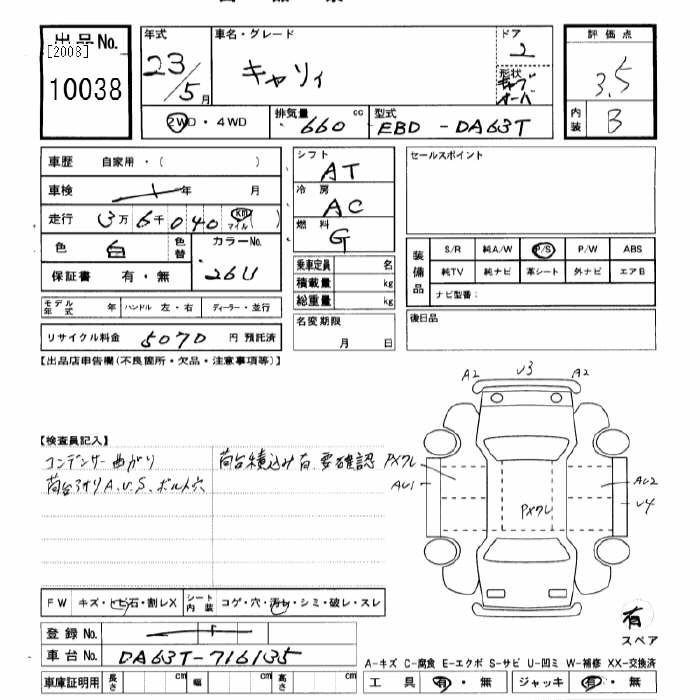 出品No.
[2008]
10038
年式
23/5月
車名・グレード
キャリィ
ドア
2
形状
キャブオーバ
評価点
3.5
内装
B
2WD・4WD
排気量 660 cc
型式 EBD-DA63T
車歴 自家用・( )
車検 年 月
走行 3万6千040 km マイル ( )
色 白 色替
カラーNo. 26U
保証書 有・無
モデル年式 年 ハンドル 左・右 ディーラー・並行
リサイクル料金 5070 円 預託済
シフト
AT
冷房
AC
燃料
G
乗車定員 名
積載量 kg
総重量 kg
名変期限
月 日
セールスポイント
装備品
S/R 純A/W P/S P/W ABS
純TV 純ナビ 革シート 外ナビ エアB
ナビ型番:
後日品
【出品店申告欄(不良箇所・欠品・注意事項等)】
【検査員記入】
コンデンサー曲がり
荷台積込み有 要確認
荷台ヨリA.U.S.ボルト穴
A2 U3 A2
PXワレ
AU1
AU2
U4
PXワレ
有
スペア
FW キズ・トビ石・割レX
シート内装 コゲ・穴・汚レ・シミ・破レ・スレ
登録No.
車台No. DA63T-716135
車庫証明用 長さ cm 幅 cm 高さ cm
A-キズ C-腐食 E-エクボ S-サビ U-凹ミ W-補修 XX-交換済
工具 有・無 ジャッキ 有・無